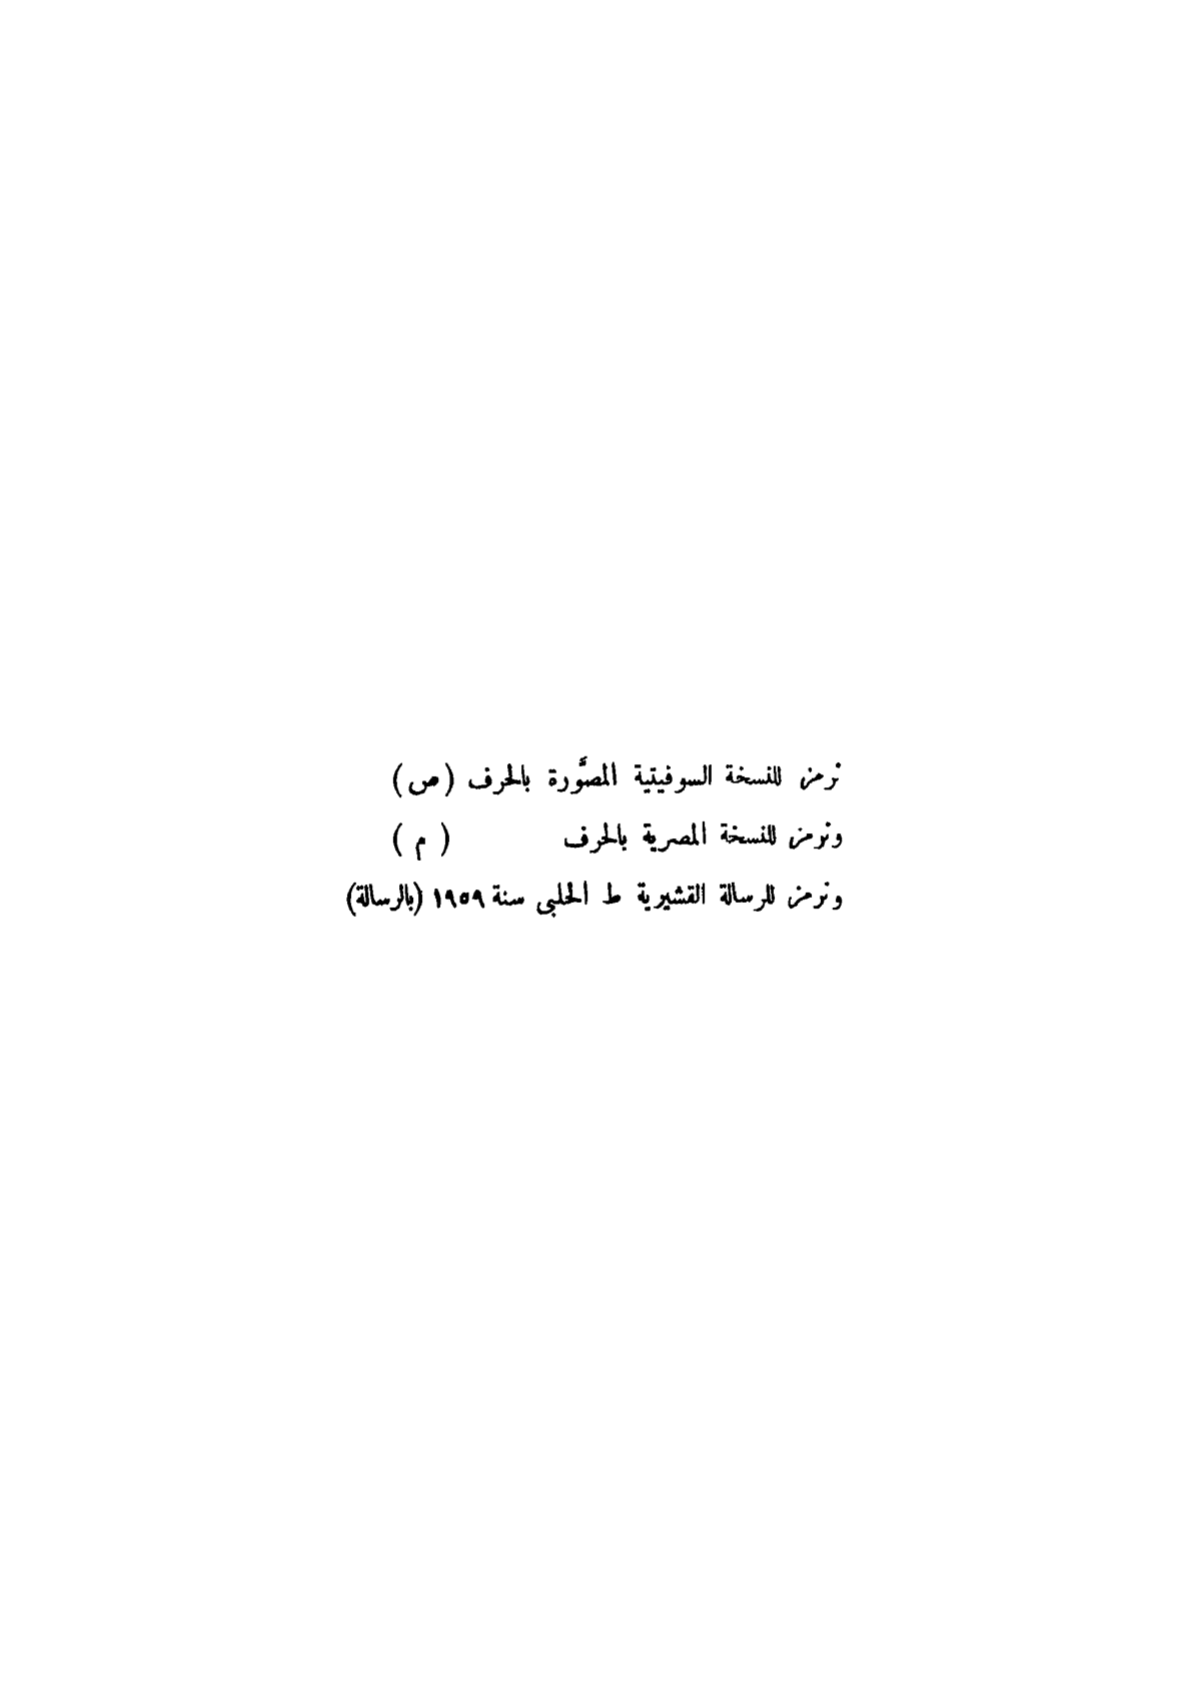 نرمز للنسخة السوفيتية المصوَّرة بالحرف (ص)
ونرمز للنسخة المصرية بالحرف ( م )
ونرمز للرسالة القشيرية ط الحلبى سنة ١٩٥٩ (بالرسالة)